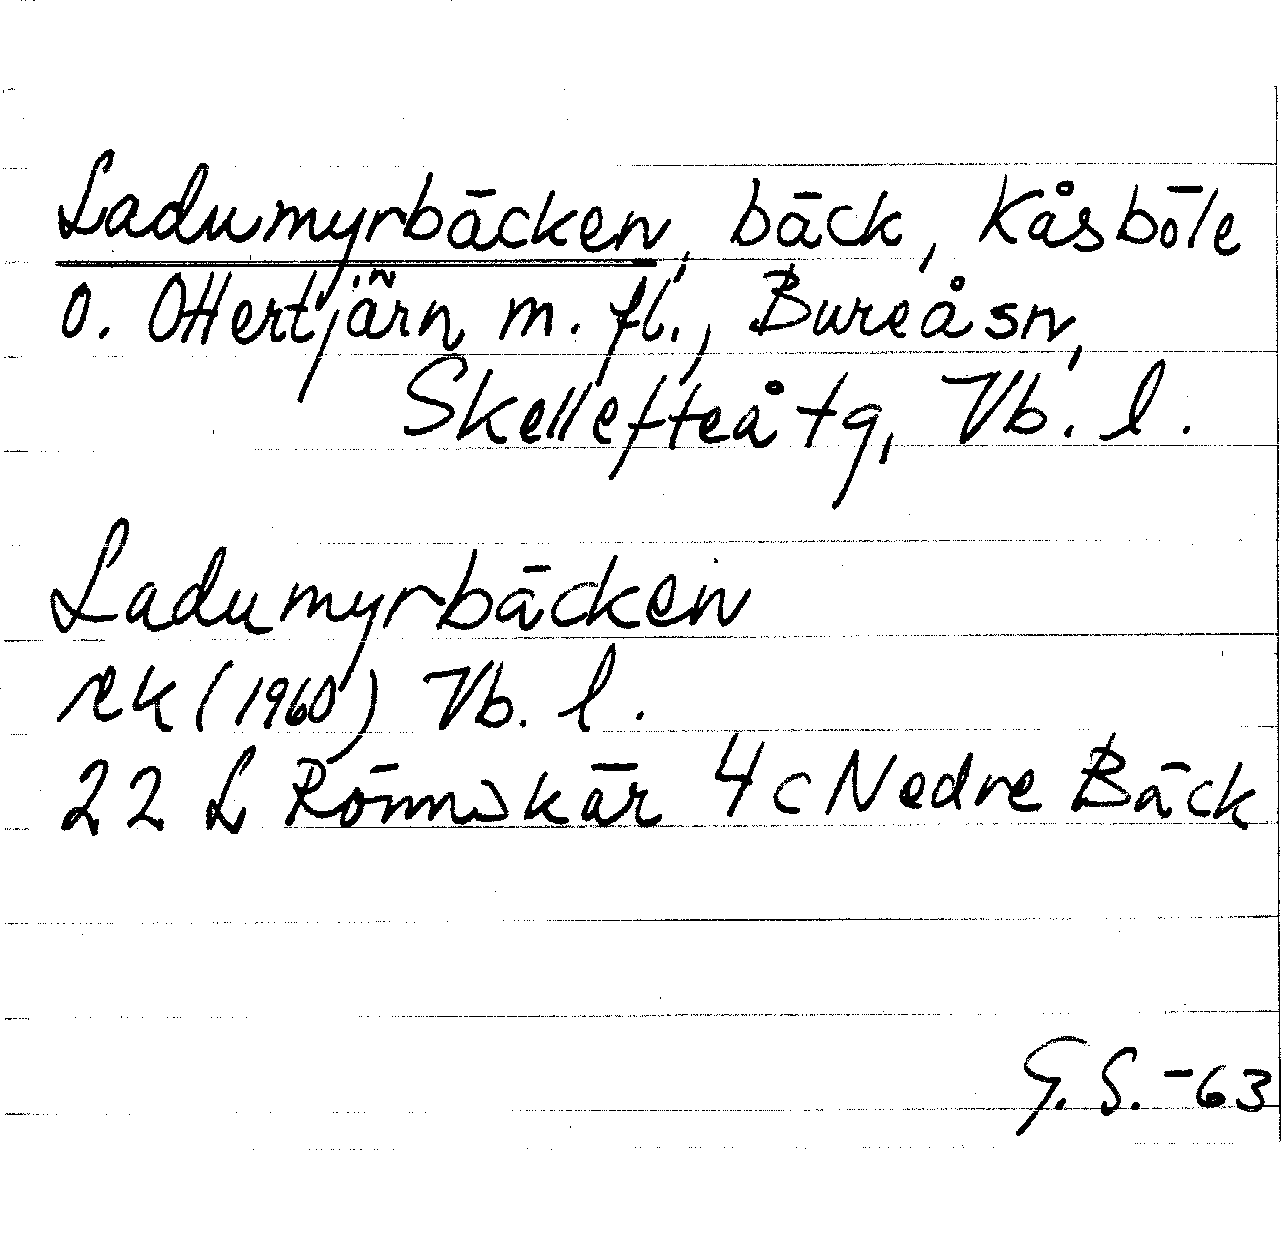 Ladumyrbäcken, bäck, Kåsböle
o. Ottertjärn m. fl., Bureå sn,
Skellefteå tg, Vb. l.
Ladumyrbäcken
rek (1960) Vb. l.
22 L Rönnskär 4 c Nedre Bäck
G. S. -63